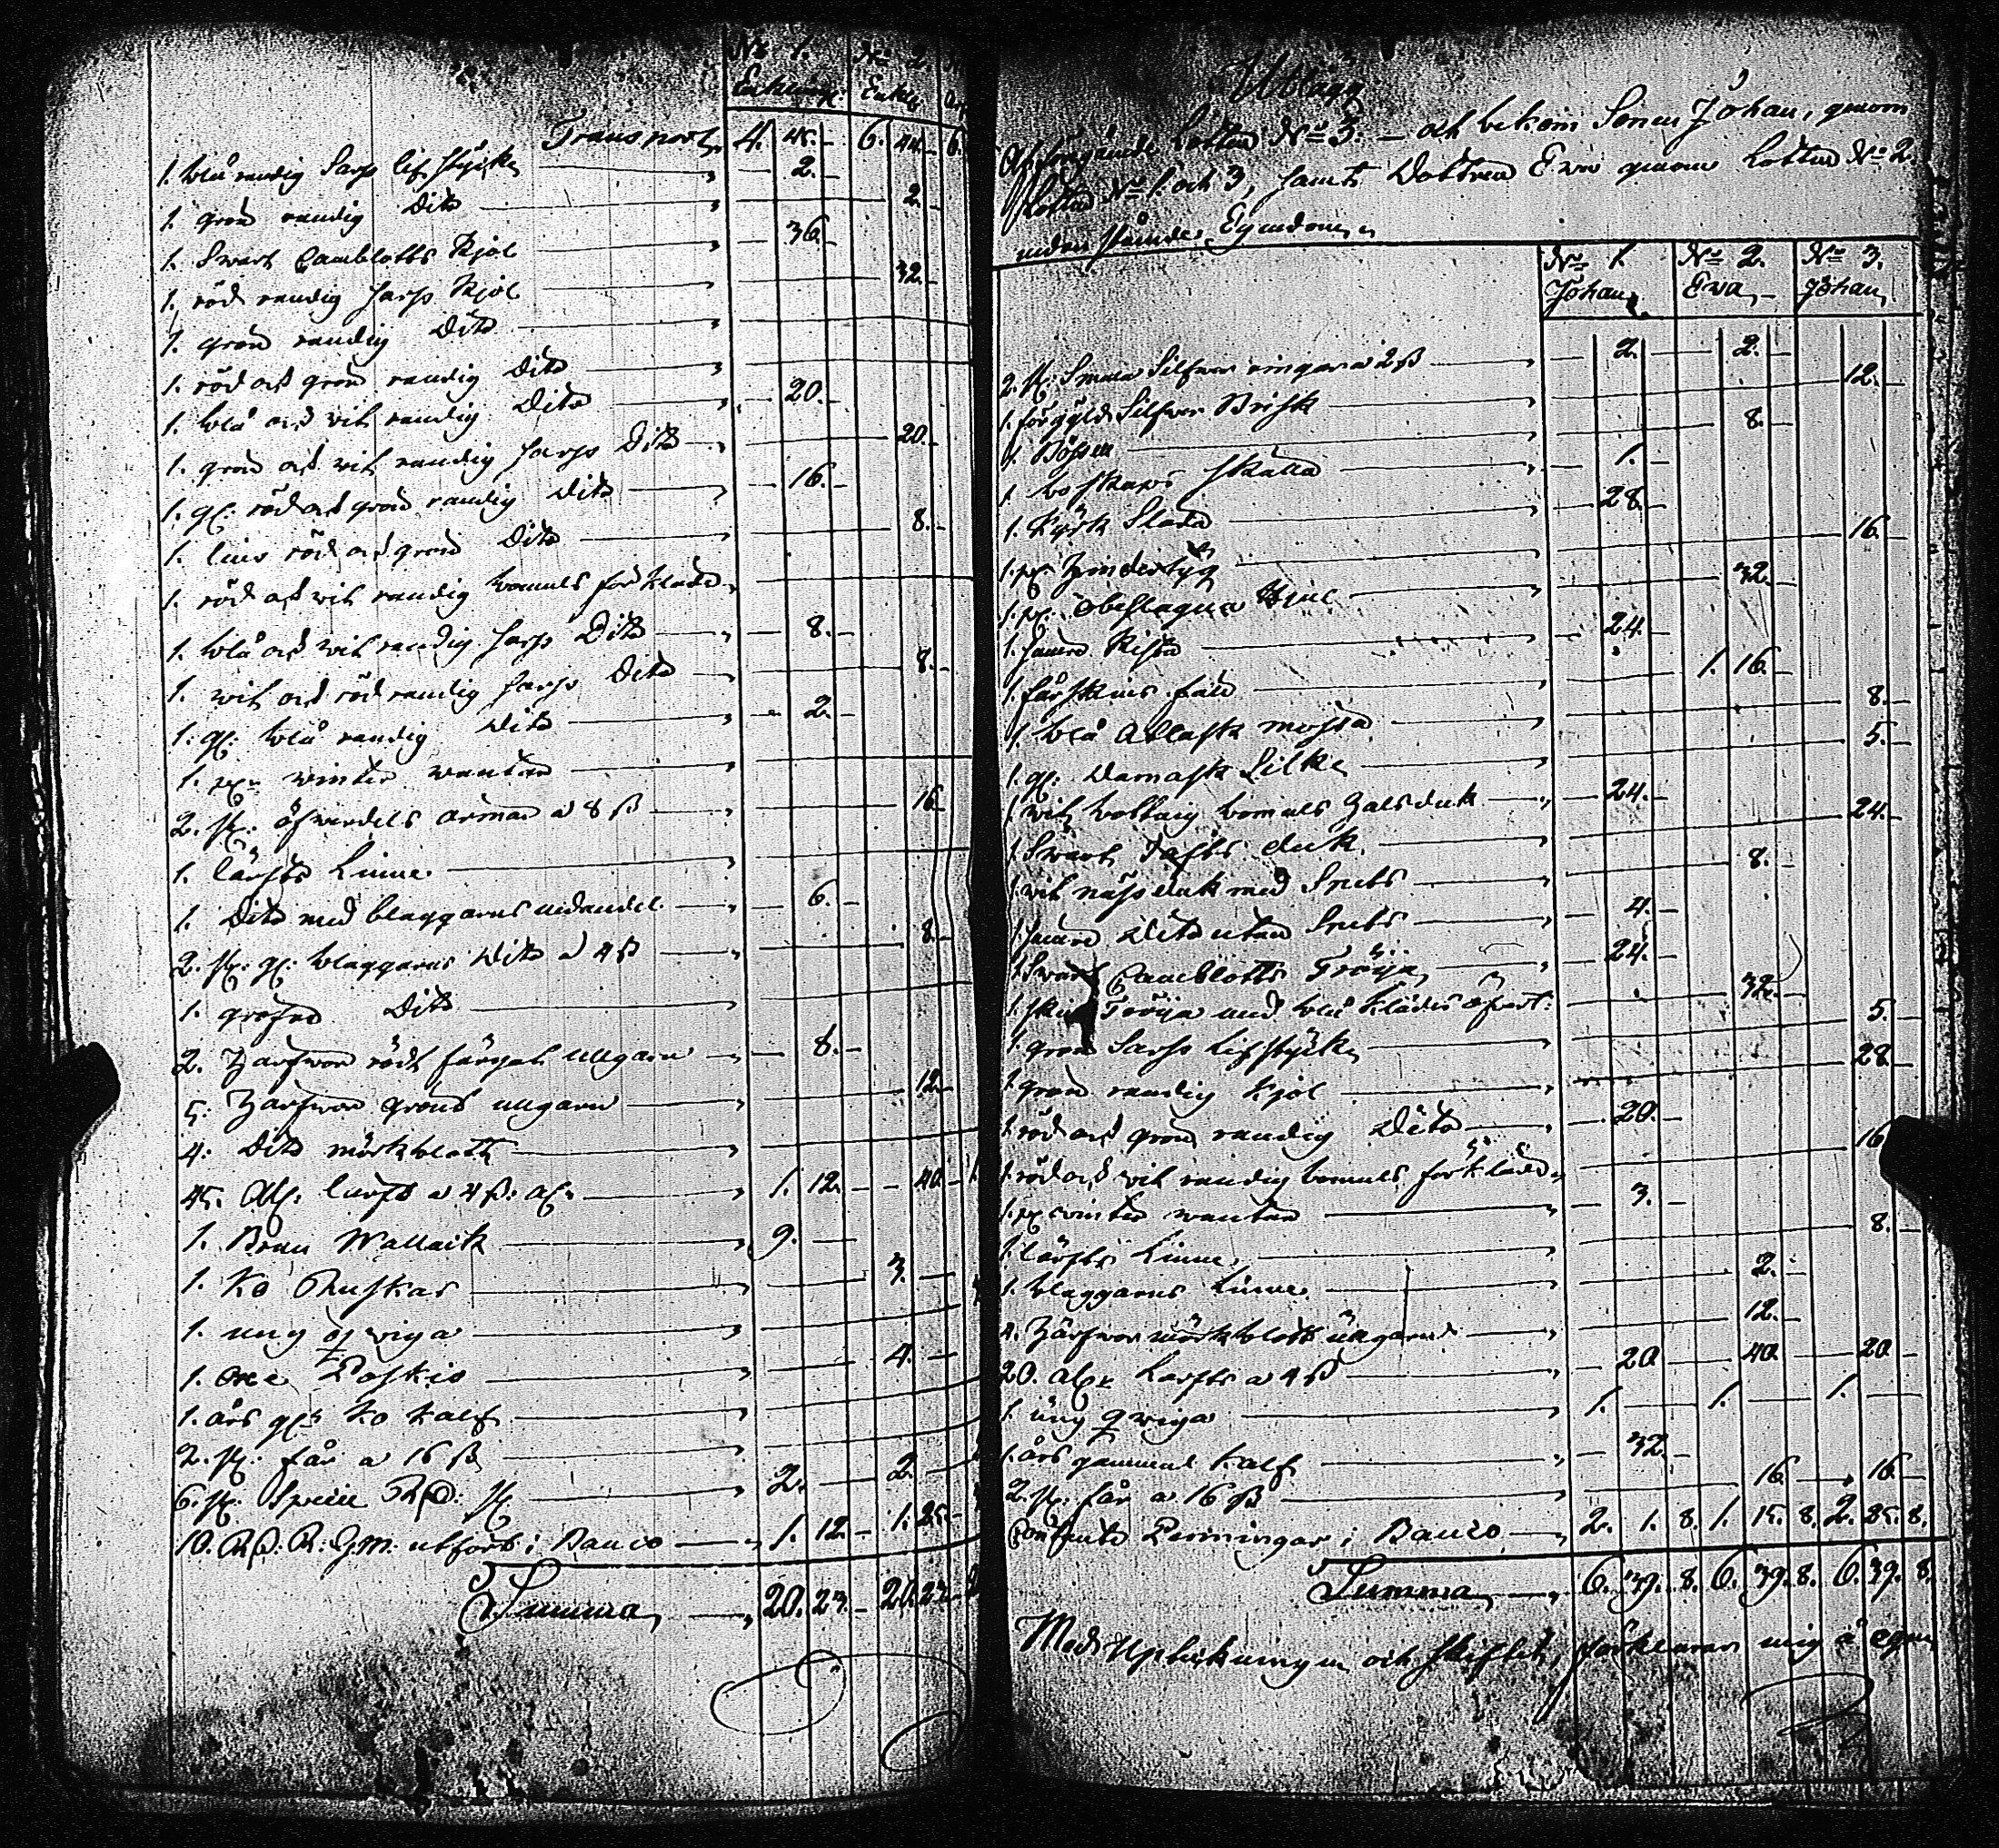 N: 1. N: 2.
Enkling: Enkl:
Transport, 4. 45. – 6. 44. – 6.
1. blå randig Sars lifstycke 2.
1. grön randig Dito 2.
1. Swart Camblotts Kjol 36.
1. röd randig Sarss Kjol 32.
1. grön randig Dito
1. röd och grön randig Dito
1. blå och wit randig Dito 20.
1. grön och wit randig Sarss Dito 20.
1. gl: röd och grön randig Dito 16.
1. lius röd och grön Dito 8.
1. röd och wit randig bomuls förkläde
1. blå och wit randig Sarss Dito 8.
1. wit och röd randig Sarss Dito 8.
1. gl: blå randig Dito 2.
1. par winter wantar
2. st: öfverdels ärmar a 8 ß 16.
1. lärfts Linne
1. Dito med blaggarns nedandel 6.
2. st: gl: blaggarns Dito a 4 ß 8.
1. gröfre Dito
2. Härfwor rödt färgat ullgarn 8.
5. Härfwor grönt ullgarn 12.
4. Dito mörkblott
45. Al: lärfts a 4 ß: al: 1. 12. – 40. – 1.
1. Brun Wallack 9. –
1. Ko Ruskas 3. –
1. ung qwiga
1. Dito Poskio 4. –
1. års gl: Ko kalf
2. st: får a 16 ß
6. st: Specie Rd: st 2. – 2. –
10. Rd: R: G.M: utförs i Banco 1. 12. – 1. 25. –
Summa 20. 23. – 20. 23.
Utlägg
Afträgande Lotten N: 3. – och bekom Sonen Johan, genom
Lotten N: 1. och 3, samt Dottren Eva genom Lotten N: 2
undan stående Egendom,
N: 1. N: 2. N: 3.
Johan, Eva, Johan,
2. st: Smala Silfwer ringar a 2 ß 2. 2.
1. förgyld Silfwer Brisk 12.
1. Bössa 8.
1. boskaps skälla 1.
1. Kyrk Släda 28.
1. par Hindertyg 16.
1. par: obeslagna Hjul 32.
1. sämre Kista 24.
1. fårskins fäll 1. 16.
1. blå Atlask mössa 8.
1. gl: Damask Silke 5.
1. wit bottnig bomuls Halsduk 24.
1. Swart Tafts duk 24.
1. wit näsduk med Spets 8.
1. sämre Dito utan Spets 4.
1. Swart Camblotts Tröja 24.
1. skin Tröja med blå klädes öfvert: 32.
1. grön Sarss Lifstycke 5.
1. grön randig Kjol 28
1. röd och grön randig Dito 20.
1. röd och wit randig bomuls förkläde 16
1. par winter wantar 3.
1. lärfts Linne 8.
1. blaggarns Linne 2.
4. Härfwor mörkblott ullgarn 12.
20. alnr Lärfts a 4 ß 20 40. 20
1. ung qwiga 1. 1. 1.
1. års gammal Kalf 32
2. st: får a 16 ß 16. 16.
Contante Penningar i Banco 2. 1. 8. 1. 15. 8. 2. 25. 8.
Summa 6. 39. 8. 6. 39. 8. 6. 39. 8.
Med Uptekningen och skiftet, förklarar mig å egna